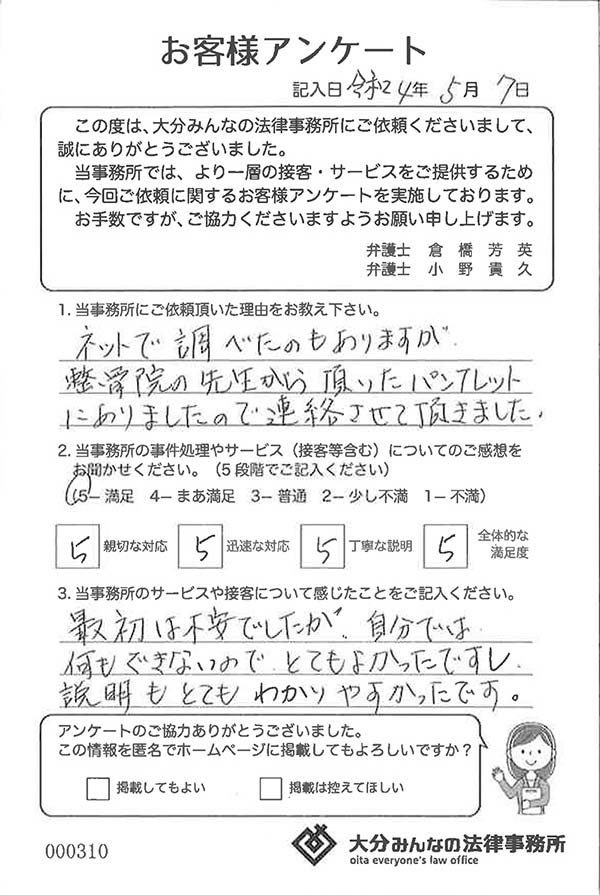 お客様アンケート
記入日 令和4年5月7日
この度は、大分みんなの法律事務所にご依頼くださいまして、
誠にありがとうございました。
当事務所では、より一層の接客・サービスをご提供するため
に、今回ご依頼に関するお客様アンケートを実施しております。
お手数ですが、ご協力くださいますようお願い申し上げます。
弁護士 倉橋芳英
弁護士 小野貴久
1. 当事務所にご依頼頂いた理由をお教え下さい。
ネットで調べたのもありますが
整骨院の先生から頂いたパンフレット
にありましたので連絡させて頂きました.
2. 当事務所の事件処理やサービス（接客等含む）についてのご感想を
お聞かせください。（5段階でご記入ください）
（5－満足 4－まあ満足 3－普通 2－少し不満 1－不満）
5 親切な対応 5 迅速な対応 5 丁寧な説明 5 全体的な
満足度
3. 当事務所のサービスや接客について感じたことをご記入ください。
最初は不安でしたが、自分では
何もできないので とてもよかったですし
説明もとてもわかりやすかったです。
アンケートのご協力ありがとうございました。
この情報を匿名でホームページに掲載してもよろしいですか？
掲載してもよい 掲載は控えてほしい
000310
大分みんなの法律事務所
oita everyone's law office